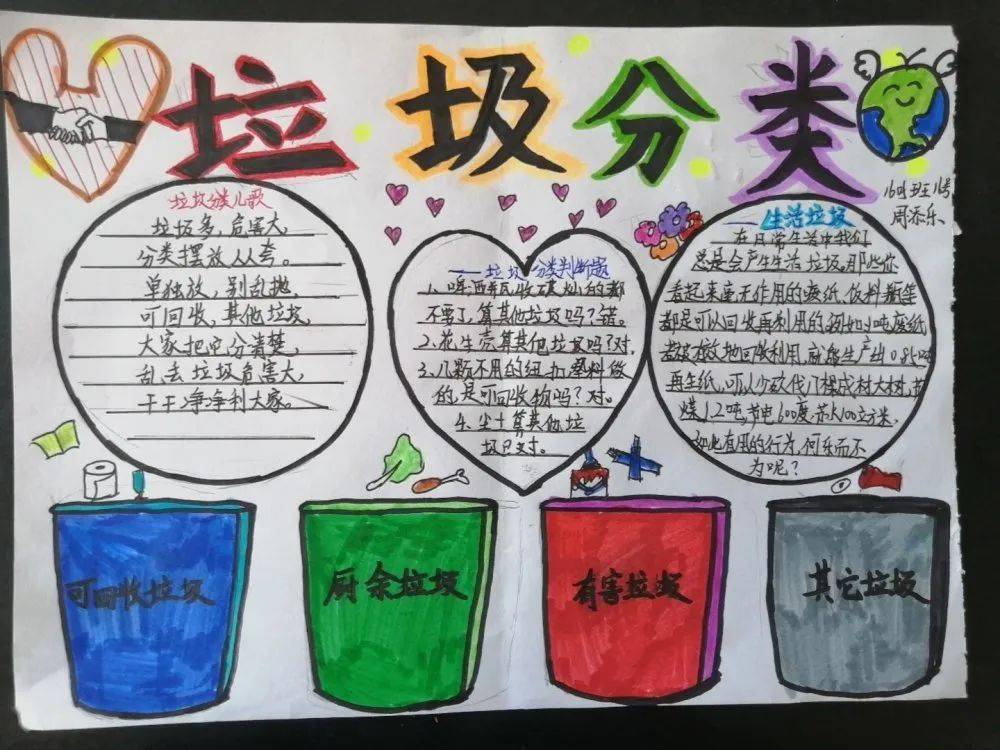 垃圾分类
1604班18号
周添乐
垃圾分类儿歌
垃圾多,危害大,
分类摆放人人夸。
单独放,别乱抛,
可回收,其他垃圾,
大家把它分清楚,
乱丢垃圾危害大,
干干净净利大家。
垃圾分类判断题
不要了,算其他垃圾吗?错。
2.花生壳算其他垃圾吗?对,
3.儿歌不用的纽扣塑料做
的,是可回收物吗?对。
4.尘土算其他垃
圾吗 对。
生活垃圾
在日常生活中我们
总是会产生生活垃圾,那些你
看起来毫无作用的废纸、饮料瓶等
都是可以回收再利用的,例如1吨废纸
再生纸,可以少砍伐17棵成材大树,节
煤1.2吨,节电600度,节水100立方米,
如此有用的行为,何乐而不
为呢?
可回收垃圾
厨余垃圾
有害垃圾
其它垃圾